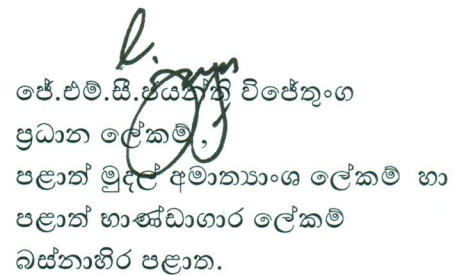 ජේ.එම්.සී.ජයන්ති විජේතුංග
ප්‍රධාන ලේකම් ,
පළාත් මුදල් අමාත්‍යාංශ ලේකම් හා
පළාත් භාණ්ඩාගාර ලේකම්
බස්නාහිර පළාත.